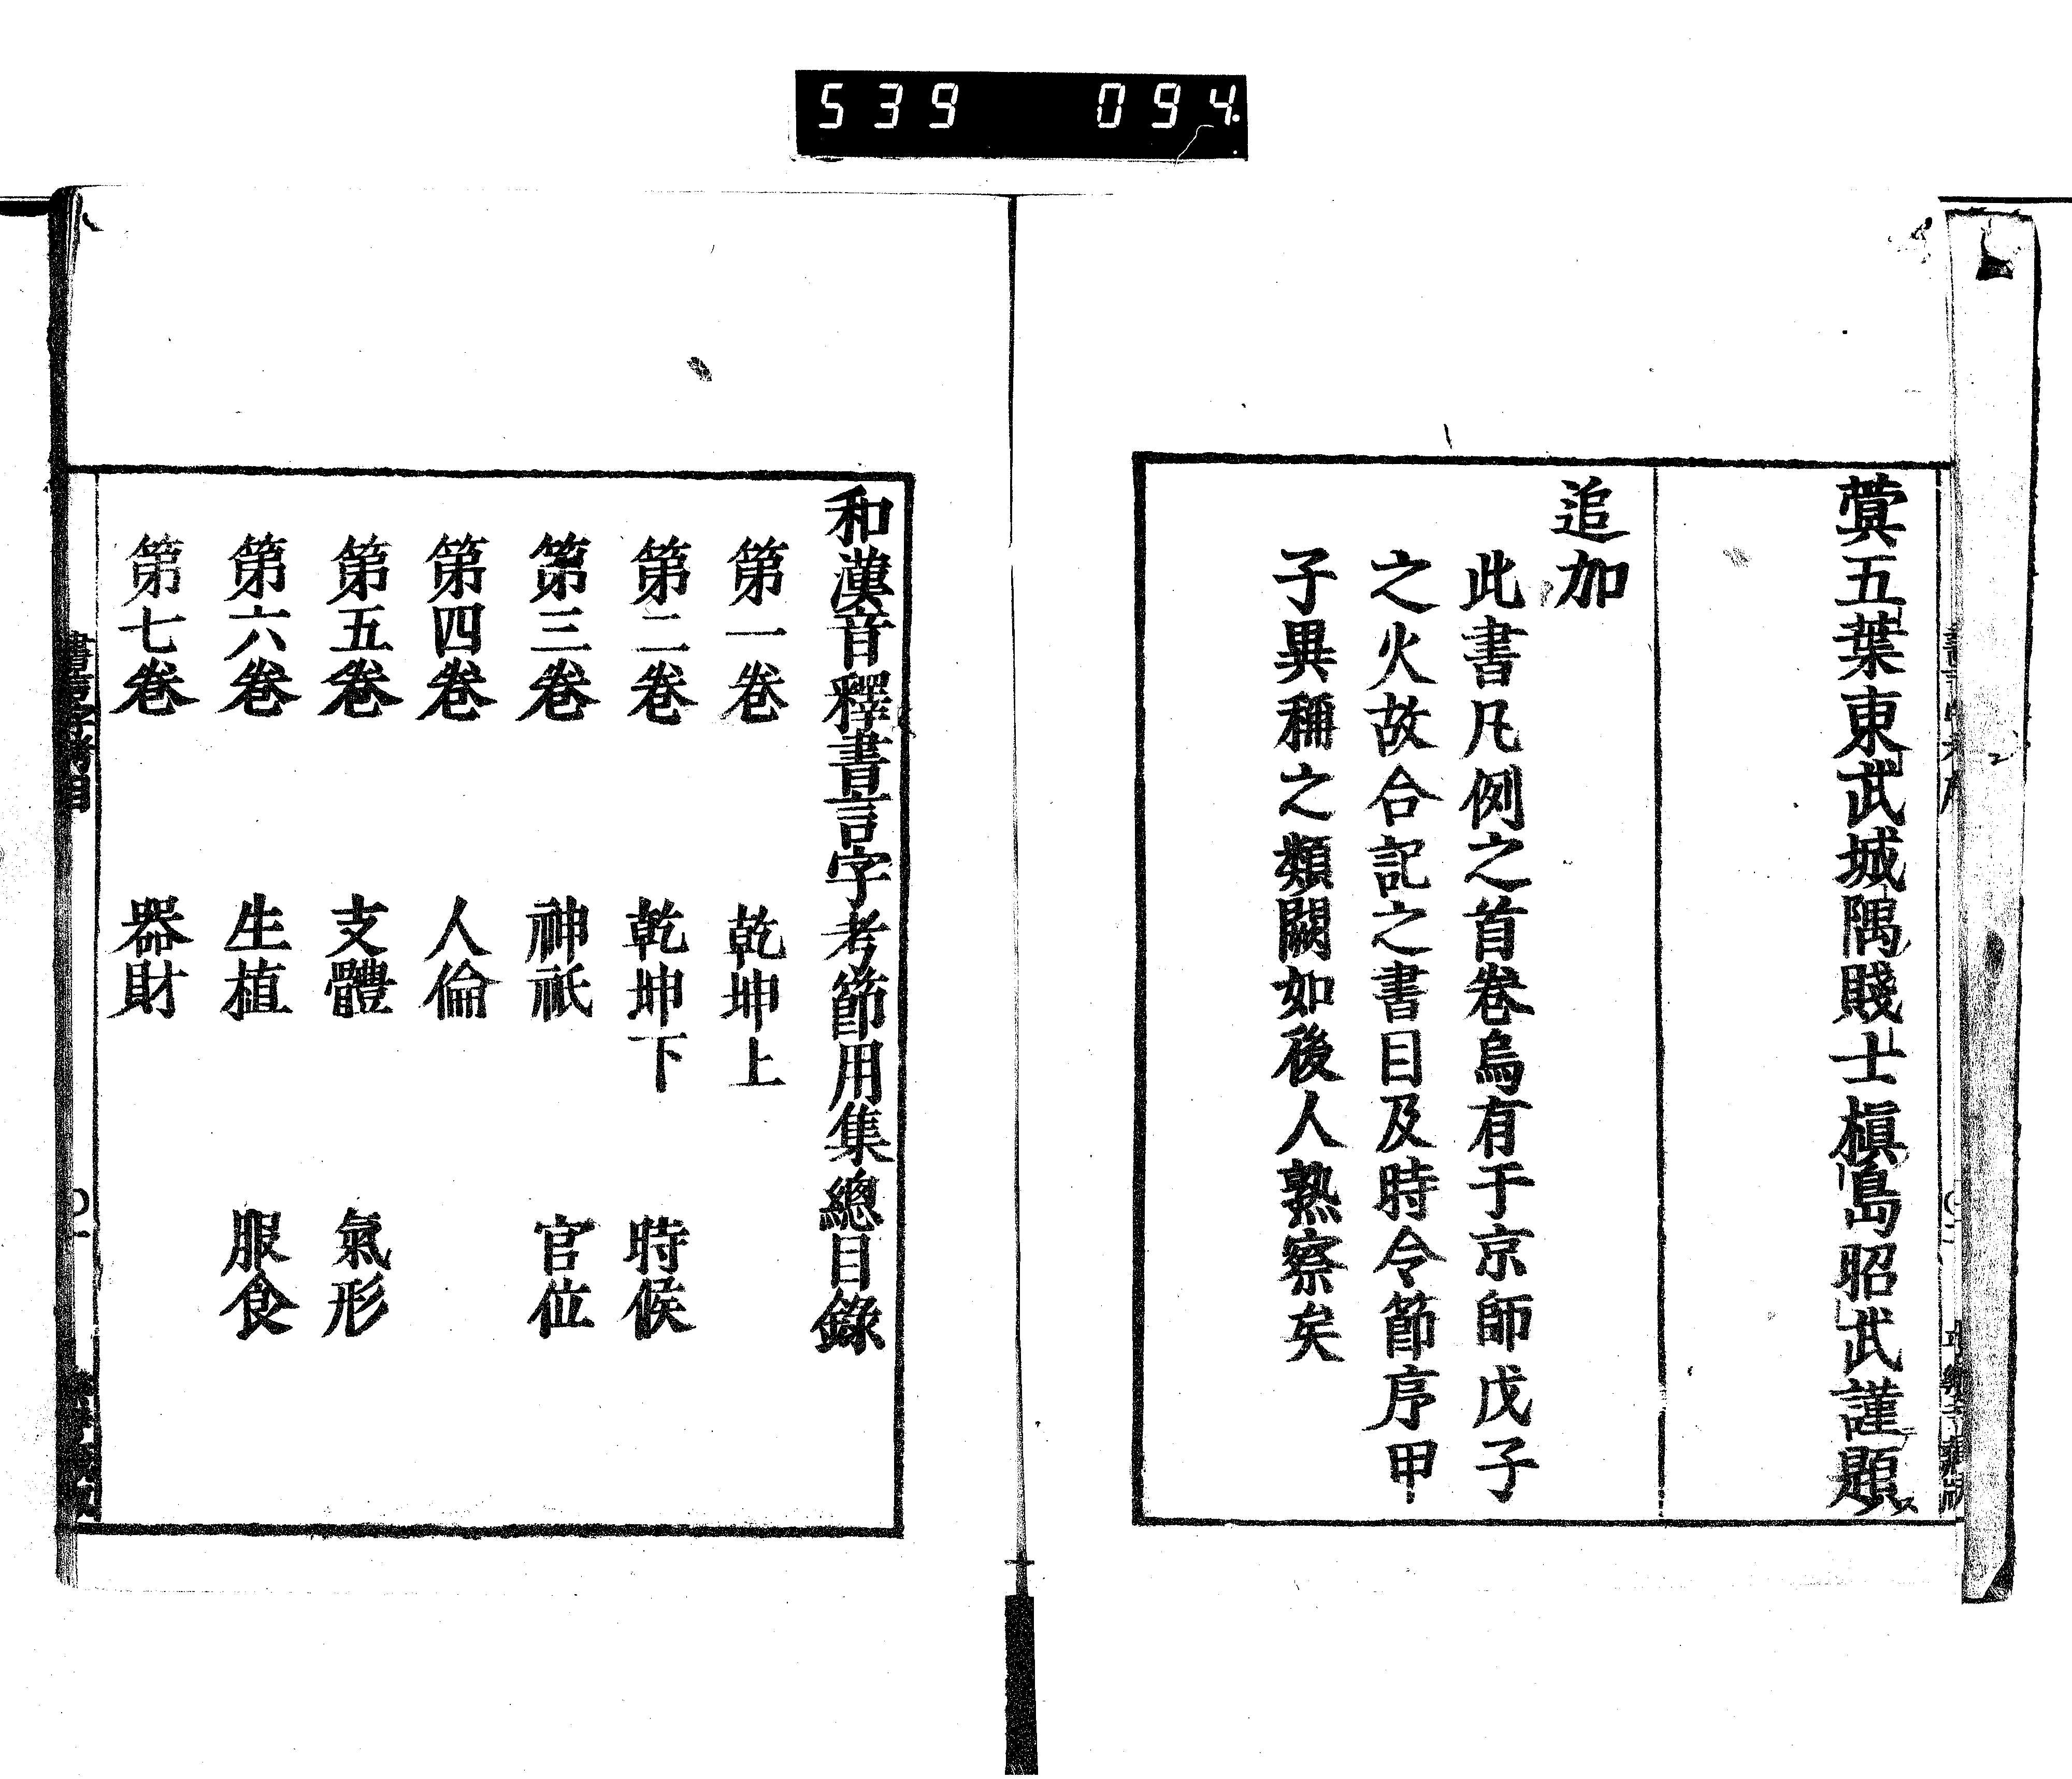 539 094
蓂五葉東武城隅賤士槙島昭武謹題
追加
此書凡例之首卷烏有于京師戊子
之火故合記之書目及時令節序甲
子異稱之類闕如後人熟察矣
和漢音釋書言字考節用集總目錄
第一卷 乾坤上
第二卷 乾坤下 時候
第三卷 神祇 官位
第四卷 人倫
第五卷 支體 氣形
第六卷 生植 服食
第七卷 器財